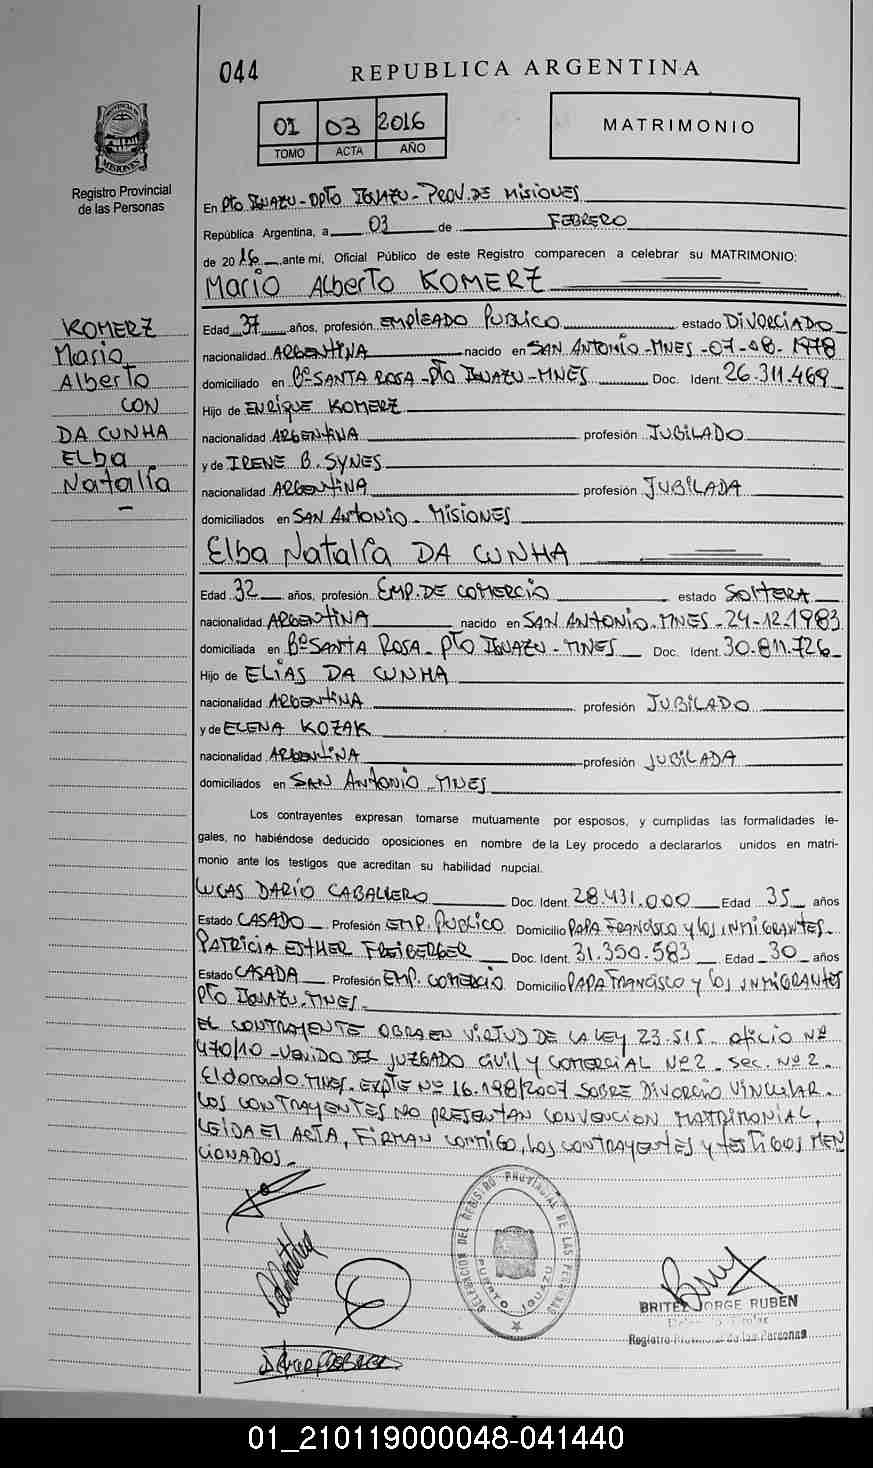 044
REPUBLICA ARGENTINA
01 03 2016
TOMO ACTA AÑO
MATRIMONIO
PROVINCIA DE MISIONES
Registro Provincial
de las Personas
En Pto IGUAZU - DPTO IGUAZU - PROV. DE MISIONES
República Argentina, a 03 de FEBRERO
de 2016 ante mí, Oficial Público de este Registro comparecen a celebrar su MATRIMONIO:
Mario Alberto KOMERZ
KOMERZ
Mario
Alberto
CON
DA CUNHA
ELba
Natalia
Edad 37 años, profesión EMPLEADO PUBLICO estado DIVORCIADO
nacionalidad ARGENTINA nacido en SAN ANTONIO - MNES - 07-08-1978
domiciliado en Bº SANTA ROSA - Pto IGUAZU - MNES Doc. Ident. 26.311.469
Hijo de ENRIQUE KOMERZ
nacionalidad ARGENTINA profesión JUBILADO
y de IRENE B. SYNES
nacionalidad ARGENTINA profesión JUBILADA
domiciliados en SAN ANTONIO - MISIONES
Elba Natalia DA CUNHA
Edad 32 años, profesión EMP. DE COMERCIO estado SOLTERA
nacionalidad ARGENTINA nacido en SAN ANTONIO - MNES - 24-12-1983
domiciliada en Bº SANTA ROSA - PTO IGUAZU - MNES Doc. Ident. 30.811.726
Hijo de ELIAS DA CUNHA
nacionalidad ARGENTINA profesión JUBILADO
y de ELENA KOZAK
nacionalidad ARGENTINA profesión JUBILADA
domiciliados en SAN ANTONIO - MNES
Los contrayentes expresan tomarse mutuamente por esposos, y cumplidas las formalidades le-
gales, no habiéndose deducido oposiciones en nombre de la Ley procedo a declararlos unidos en matri-
monio ante los testigos que acreditan su habilidad nupcial.
LUCAS DARIO CABALLERO Doc. Ident. 28.431.000 Edad 35 años
Estado CASADO Profesión EMP. PUBLICO Domicilio PAPA FRANCISCO y los INMIGRANTES
PATRICIA ESTHER FREIBERGER Doc. Ident. 31.350.583 Edad 30 años
Estado CASADA Profesión EMP. COMERCIO Domicilio PAPA FRANCISCO y los INMIGRANTES
PTO IGUAZU - MNES -
EL CONTRAYENTE OBRA EN VIRTUD DE LA LEY 23.515 - OFICIO Nº
470/10 - VENIDO DEL JUZGADO CIVIL y COMERCIAL Nº 2 - SEC. Nº 2 -
Eldorado - MNES - EXPTE Nº 16.198/2007 SOBRE DIVORCIO VINCULAR -
LOS CONTRAYENTES NO PRESENTAN CONVENCION MATRIMONIAL,
LEIDA EL ACTA, FIRMAN CONMIGO, LOS CONTRAYENTES y TESTIGOS MEN
CIONADOS -
DELEGACION DEL REGISTRO PROVINCIAL DE LAS PERSONAS
PUERTO IGUAZU
BRITEZ JORGE RUBEN
Registro Provincial de las Personas
01_210119000048-041440